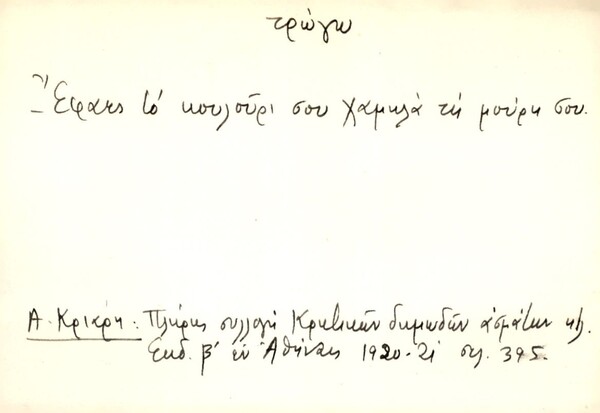 τρώγω
– Ἔφαες τό κουλοῦρι σου χαμηλά τή μούρη σου.
Α. Κριάρη: Πλήρης συλλογή Κρητικῶν δημωδῶν ᾀσμάτων κλ.
Ἐκδ. β' ἐν Ἀθήναις 1920-21 σελ. 395.